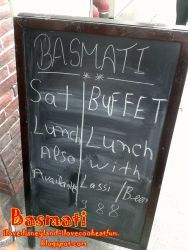 BASMATI
**
Sat/BUFFET
Lund/Lunch
Also with
Available Lassi/Beer
388
Basmati
ilovedisneyland-ilovecookeatfun.
blogspot.com